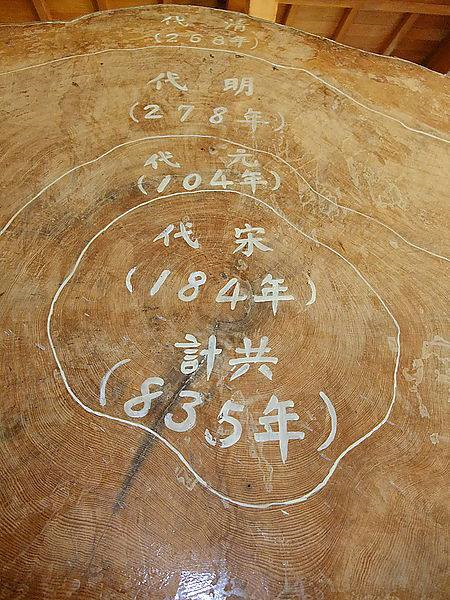 清代
(268年)
明代
(278年)
元代
(104年)
宋代
(184年)
共計
(835年)